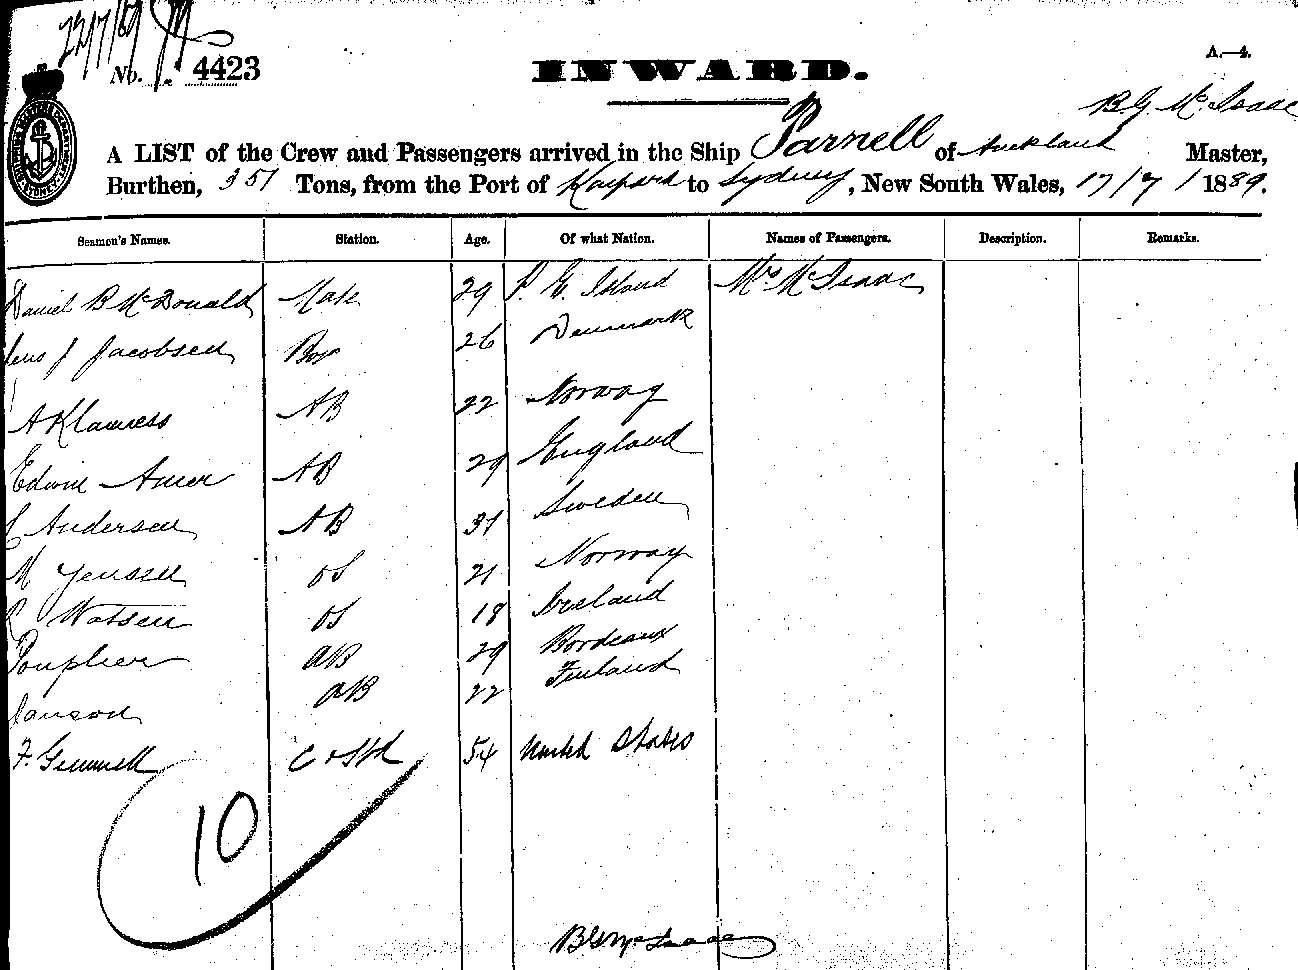 22/7/89
No. 4423
INWARD.
A.—4.
B. G. McIsaac
A LIST of the Crew and Passengers arrived in the Ship Parnell of Auckland Master,
Burthen, 351 Tons, from the Port of to Sydney, New South Wales, 17/7/1889.
Seamen's Names. Station. Age. Of what Nation. Names of Passengers. Description. Remarks.
Daniel B McDonald Mate 29 P. E. Island Mrs McIsaac
Jens J Jacobsen Bos 26 Denmark
A Klaness AB 22 Norway
Edwin Amer AB 29 England
C Andersen AB 31 Sweden
M Jensen OS 21 Norway
Watson OS 18 Ireland
Pouplier AB 29 Bordeaux
Janson AB 22 Finland
F. Gemmell C & Std 54 United States
10
B G McIsaac